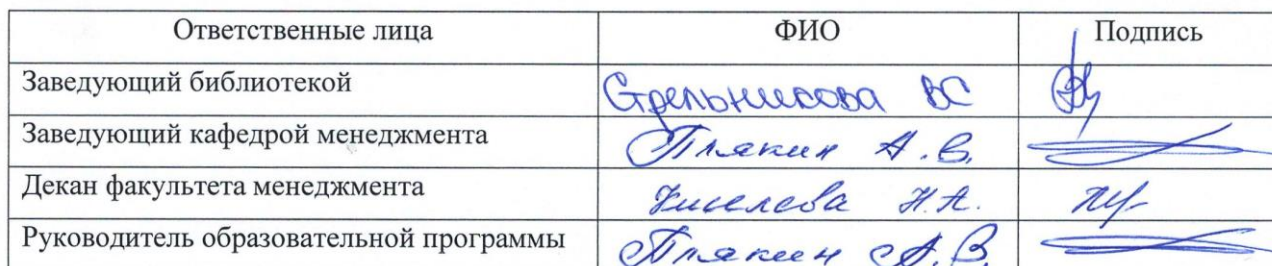 Ответственные лица ФИО Подпись
Заведующий библиотекой Стрельникова ВС
Заведующий кафедрой менеджмента Плякин А.В.
Декан факультета менеджмента Киселева Н.А.
Руководитель образовательной программы Плякин А.В.